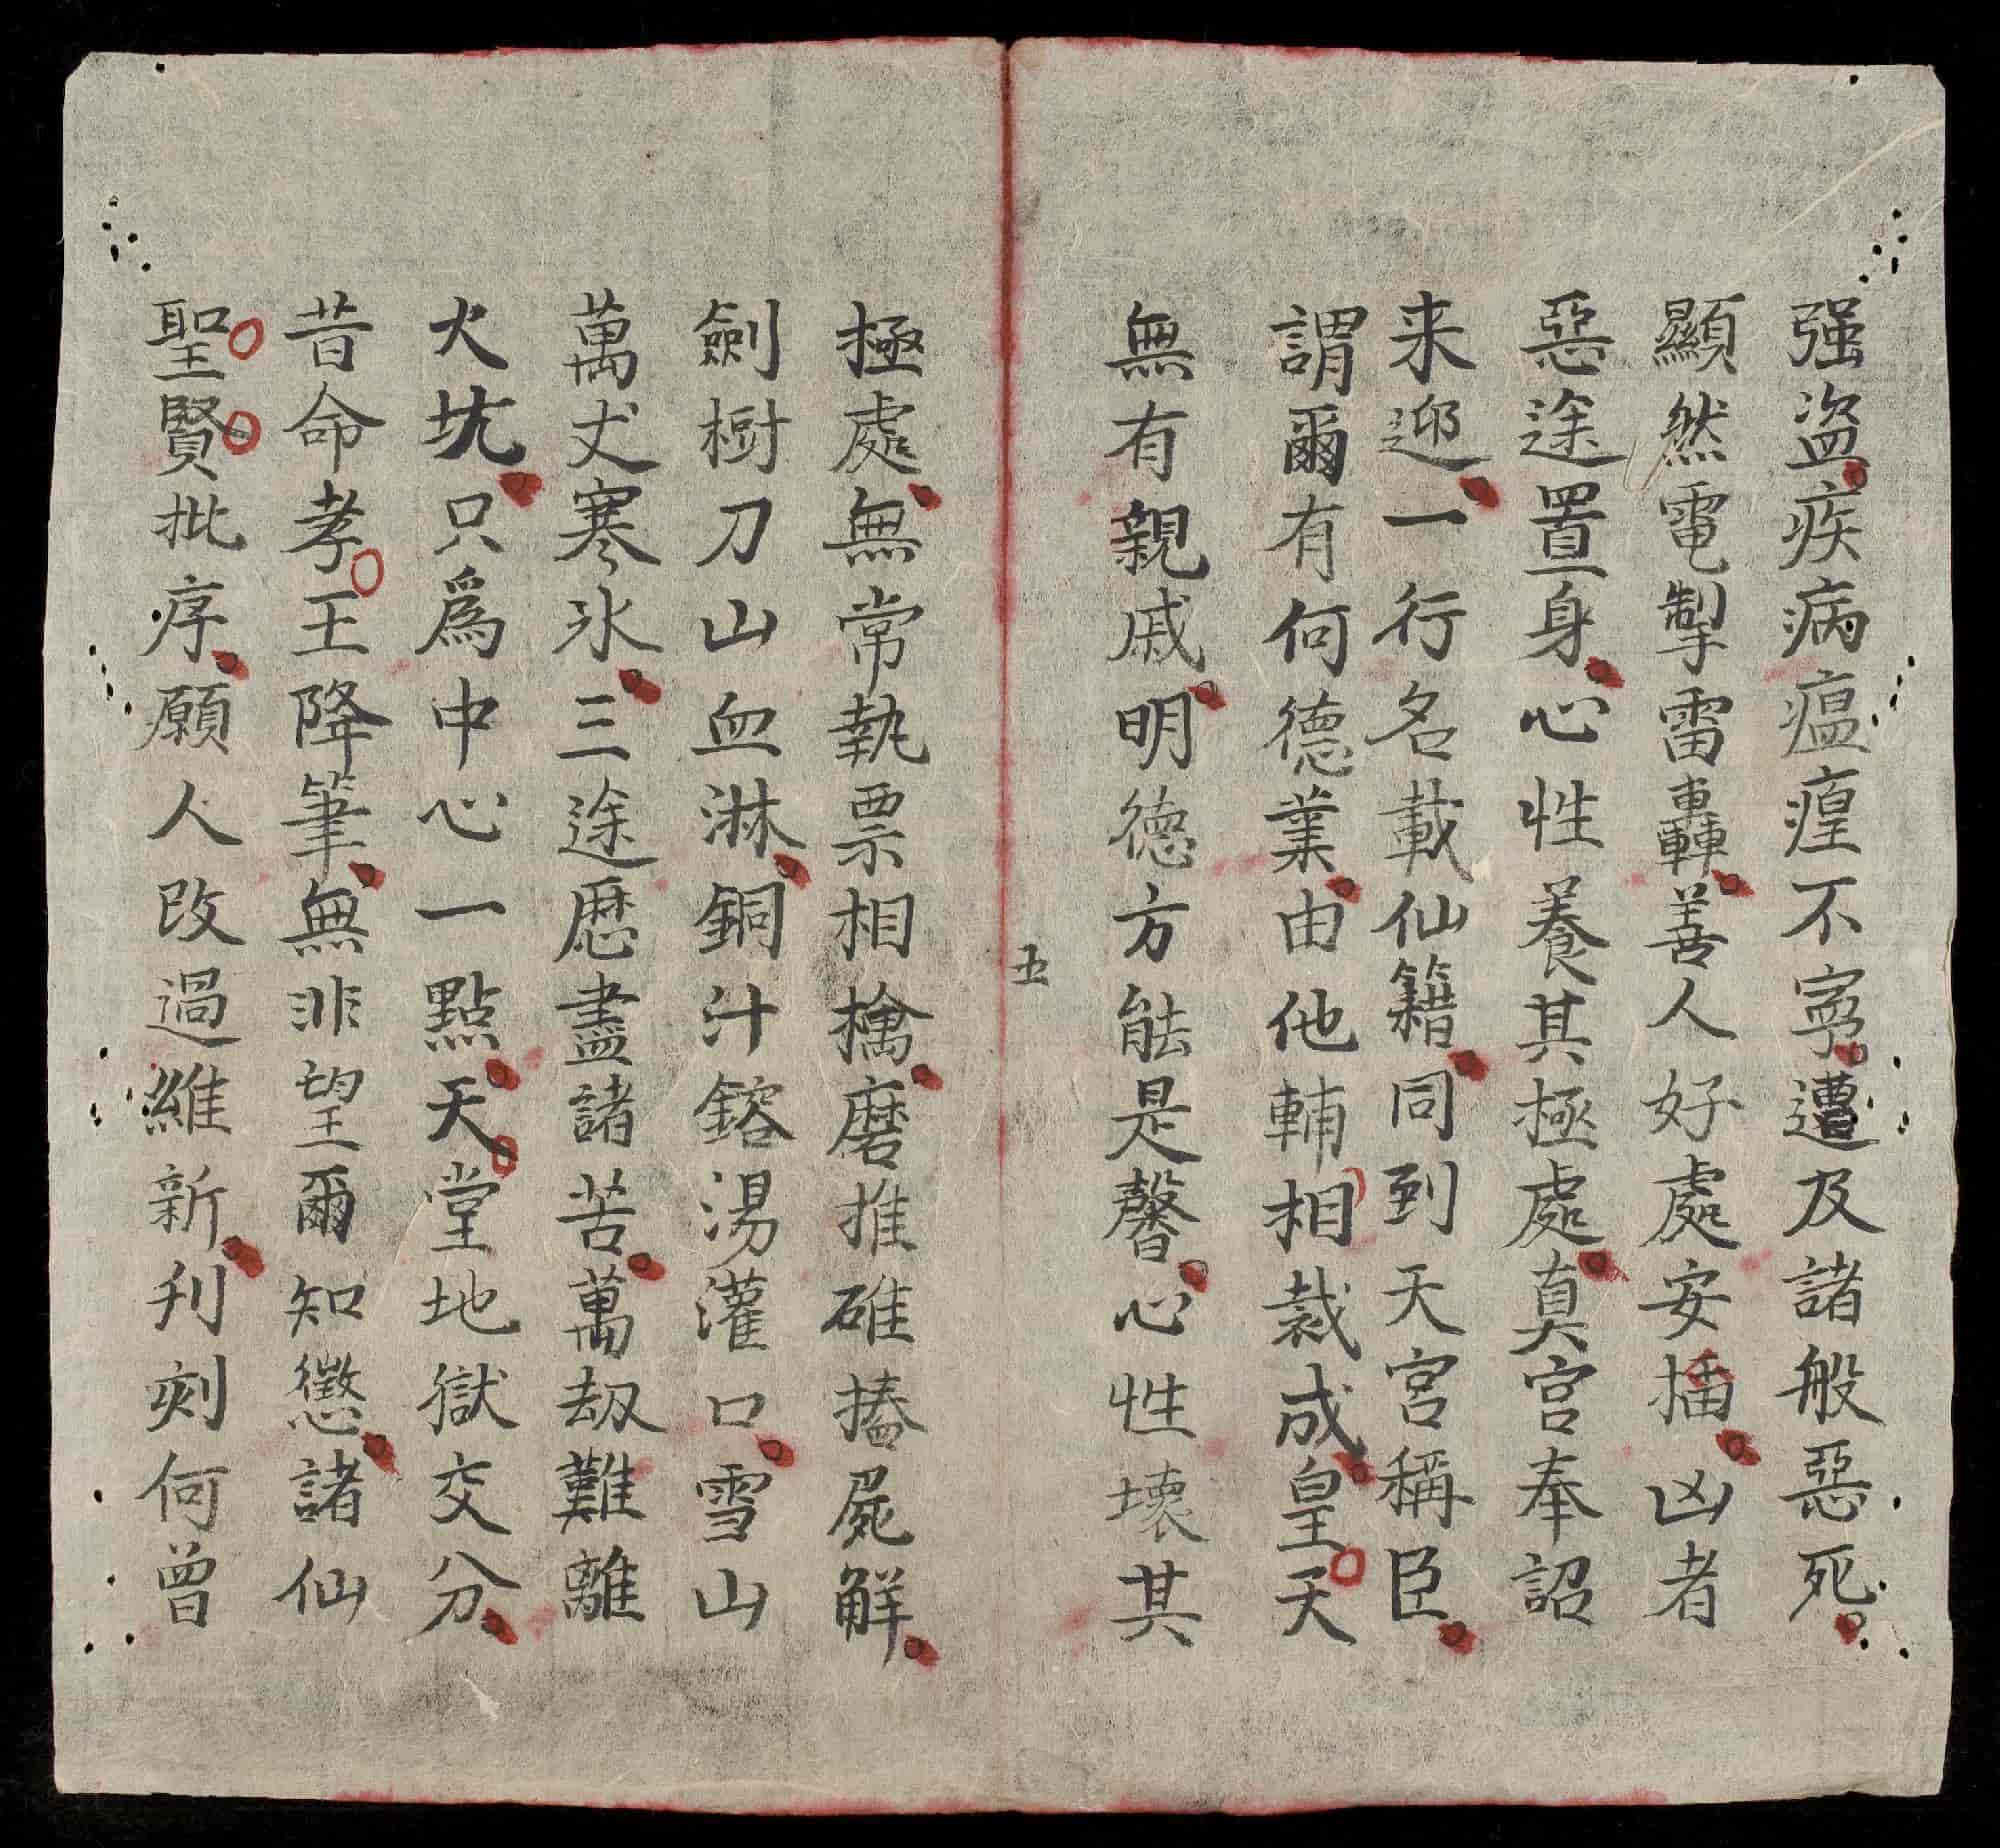 强盜疾病瘟瘟不寧遭及諸般惡死
顯然電掣雷轟善人好處安插凶者
惡途置身心性養其極處真宮奉詔
来迎一行名載仙籍同到天宮稱臣
謂爾有何德業由他輔相裁成皇天
無有親戚明德方能是馨心性壞其
五
極處無常執票相擒磨推碓搕屍解
劍樹刀山血淋銅汁鎔湯灌口雪山
萬丈寒氷三途歴盡諸苦萬刼難離
火坑只爲中心一點天堂地獄交分
昔命孝王降筆無非望爾知懲諸仙
聖賢批序願人改過維新刋刻何曾